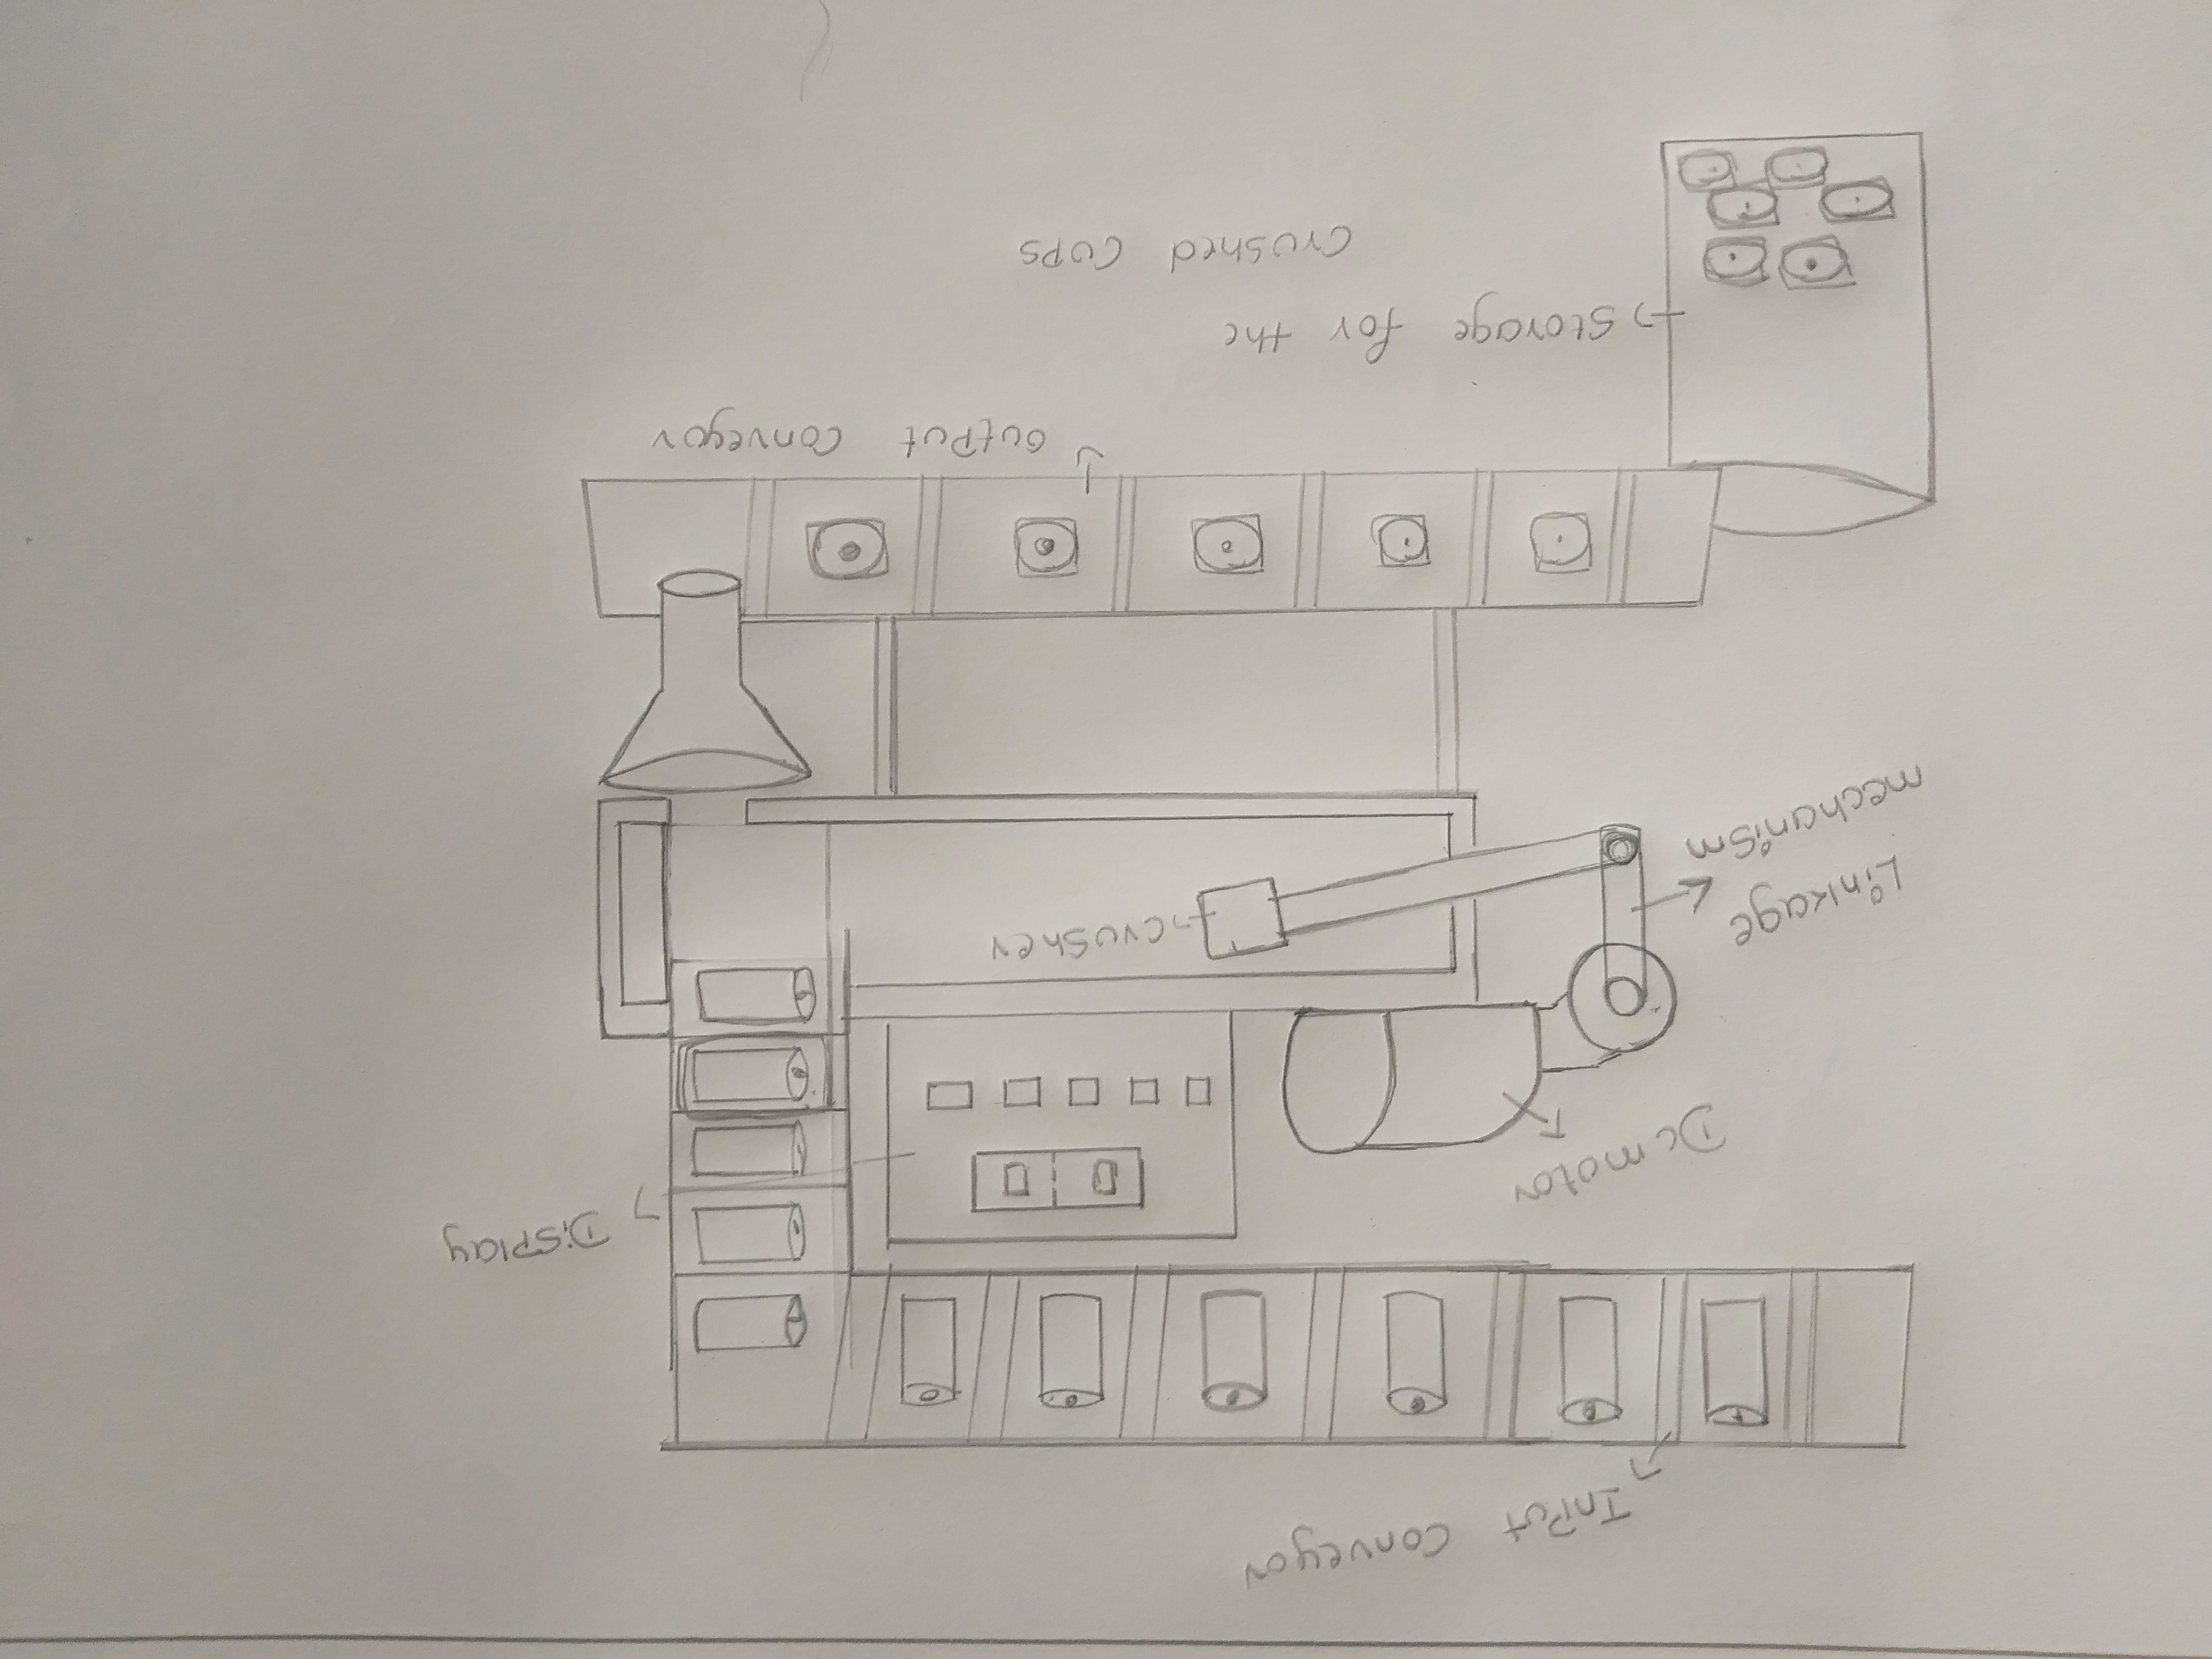 InPut Conveyor
DiSPlay
Dc motor
0 0
Linkage
mechaniSm
CruSher
outPut Conveyor
Storage for the
CruShed CUPS